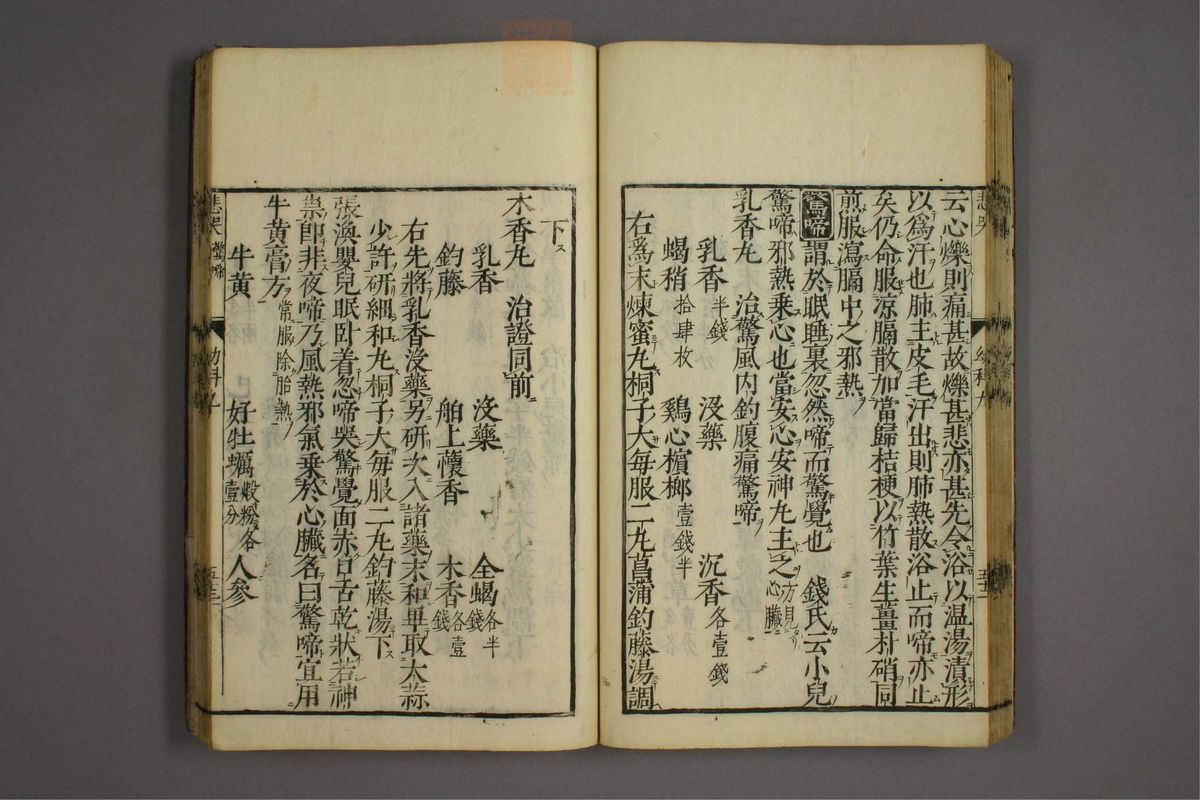 云心爍則痛甚故爍甚悲亦甚先令浴以温湯漬形
以爲汗也肺主皮毛汗出則肺熱散浴止而啼亦止
矣仍命服凉膈散加當歸桔梗以竹葉生薑朴硝同
煎服瀉膈中之邪熱
驚啼 謂於眠睡裏忽然啼而驚覺也 錢氏云小兒
驚啼邪熱乗心也當安心安神丸主之方見心臟
乳香丸 治驚風内釣腹痛驚啼
乳香半錢 没藥 沉香各壹錢
蝎稍拾肆枚 鷄心檳榔壹錢半
右爲末煉蜜丸桐子大毎服二丸菖蒲釣藤湯調
下
木香丸 治證同前
乳香 没藥 全蝎各半錢
釣藤 舶上蘹香 木香各壹錢
右先將乳香没藥另研次入諸藥末和畢取大蒜
少許研細和丸桐子大毎服二丸釣藤湯下
張渙嬰兒眠卧着忽啼哭驚覺面赤口舌乾狀若神
祟即非夜啼乃風熱邪氣乗於心臟名曰驚啼宜用
牛黄膏方常服除胎熱
牛黄 好牡蠣煆粉各壹分 人參
悲哭 驚啼
幼科九